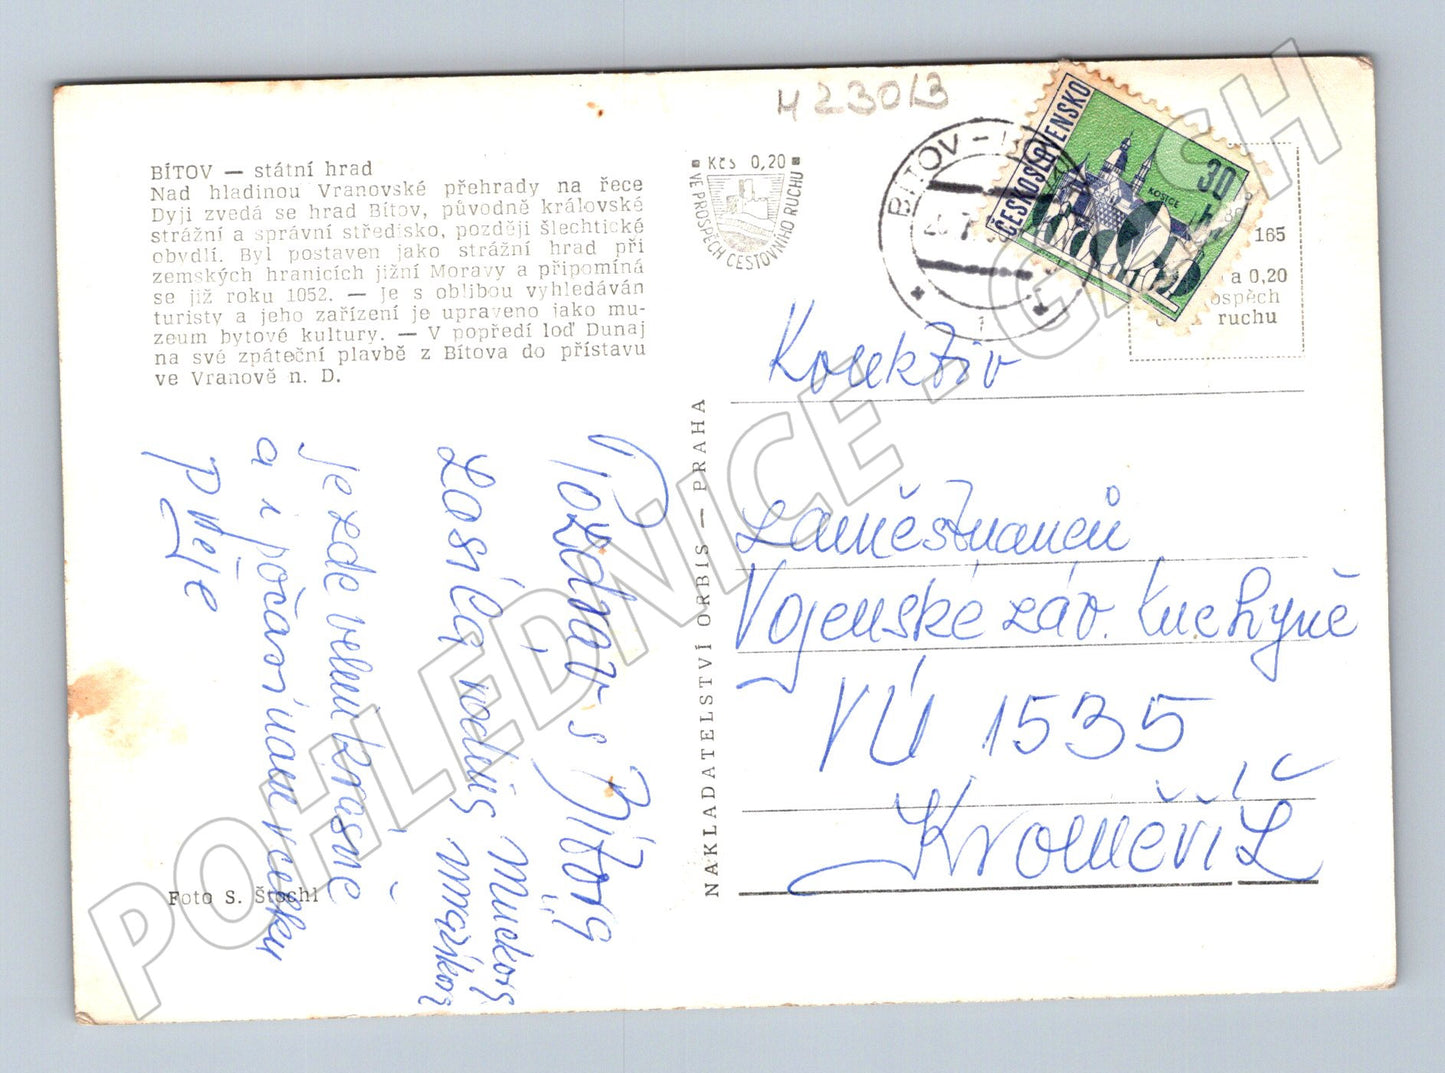 H 230/3
BÍTOV — státní hrad
Nad hladinou Vranovské přehrady na řece
Dyji zvedá se hrad Bítov, původně královské
strážní a správní středisko, později šlechtické
obydlí. Byl postaven jako strážní hrad při
zemských hranicích jižní Moravy a připomíná
se již roku 1052. — Je s oblibou vyhledáván
turisty a jeho zařízení je upraveno jako mu-
zeum bytové kultury. — V popředí loď Dunaj
na své zpáteční plavbě z Bítova do přístavu
ve Vranově n. D.
Foto S. Štochl
Kčs 0,20
VE PROSPĚCH CESTOVNÍHO RUCHU
NAKLADATELSTVÍ ORBIS — PRAHA
BÍTOV
ČESKOSLOVENSKO
30
KOŠICE
165
a 0,20
ospěch
ruchu
Kolektiv
Zaměstnanců
Vojenské záv. kuchyně
VÚ 1535
Kroměříž
Pozdrav s Bítova
Zasílá rodina
je zde velmi krásně
a i počasí nam
přeje
POHLEDNICE - CZECH